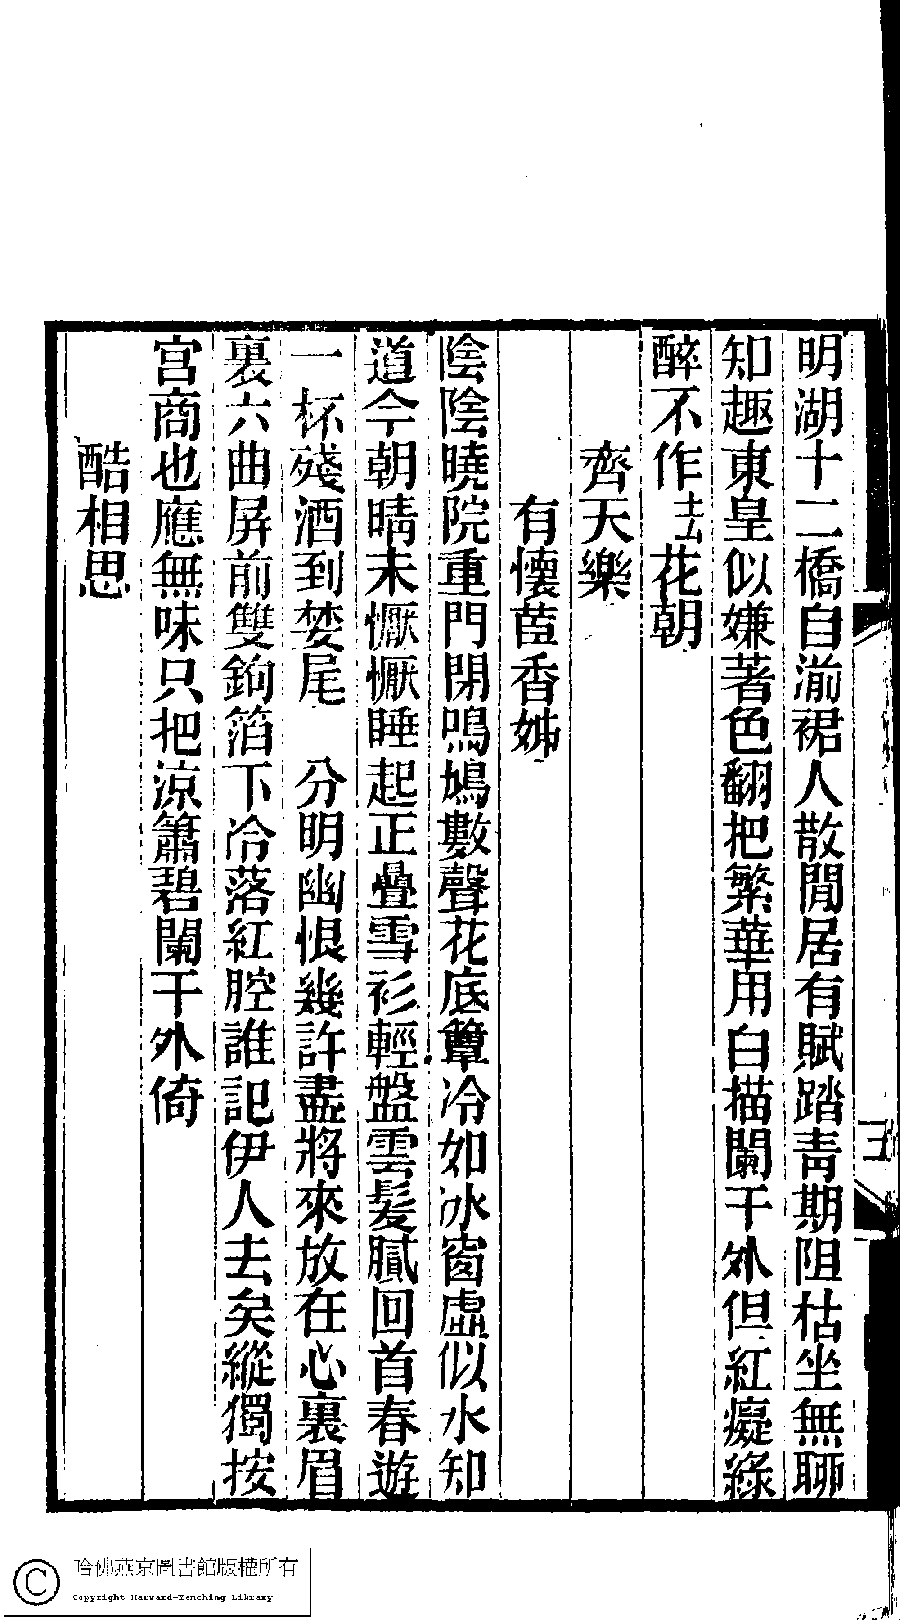 明湖十二橋自湔裙人散閒居有賦踏青期阻枯坐無聊
知趣東皇似嫌著色翻把繁華用白描闌干外但紅癡綠
醉不作去花朝
齊天樂
有懷茝香姊
陰陰曉院重門閉鳴鳩數聲花底簟冷如冰窗虛似水知
道今朝晴未懨懨睡起正疊雪衫輕盤雲髮膩回首春遊
一杯殘酒到婪尾　分明幽恨幾許盡將來放在心裏眉
裏六曲屏前雙鉤箔下冷落紅腔誰記伊人去矣縱獨按
宮商也應無味只把涼簫碧闌干外倚
酷相思
哈佛燕京圖書館版權所有
Copyright Harvard-Yenching Library